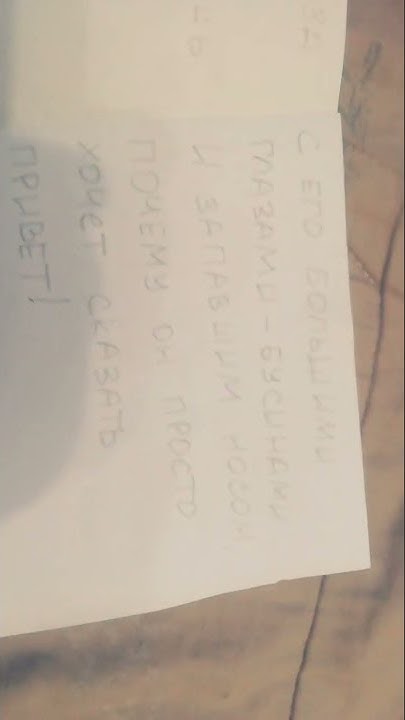 С ЕГО БОЛЬШИМИ
ГЛАЗАМИ - БУСИНАМИ
И ЗАПАВШИМ НОСОМ,
ПОЧЕМУ ОН ПРОСТО
ХОЧЕТ СКАЗАТЬ
ПРИВЕТ!